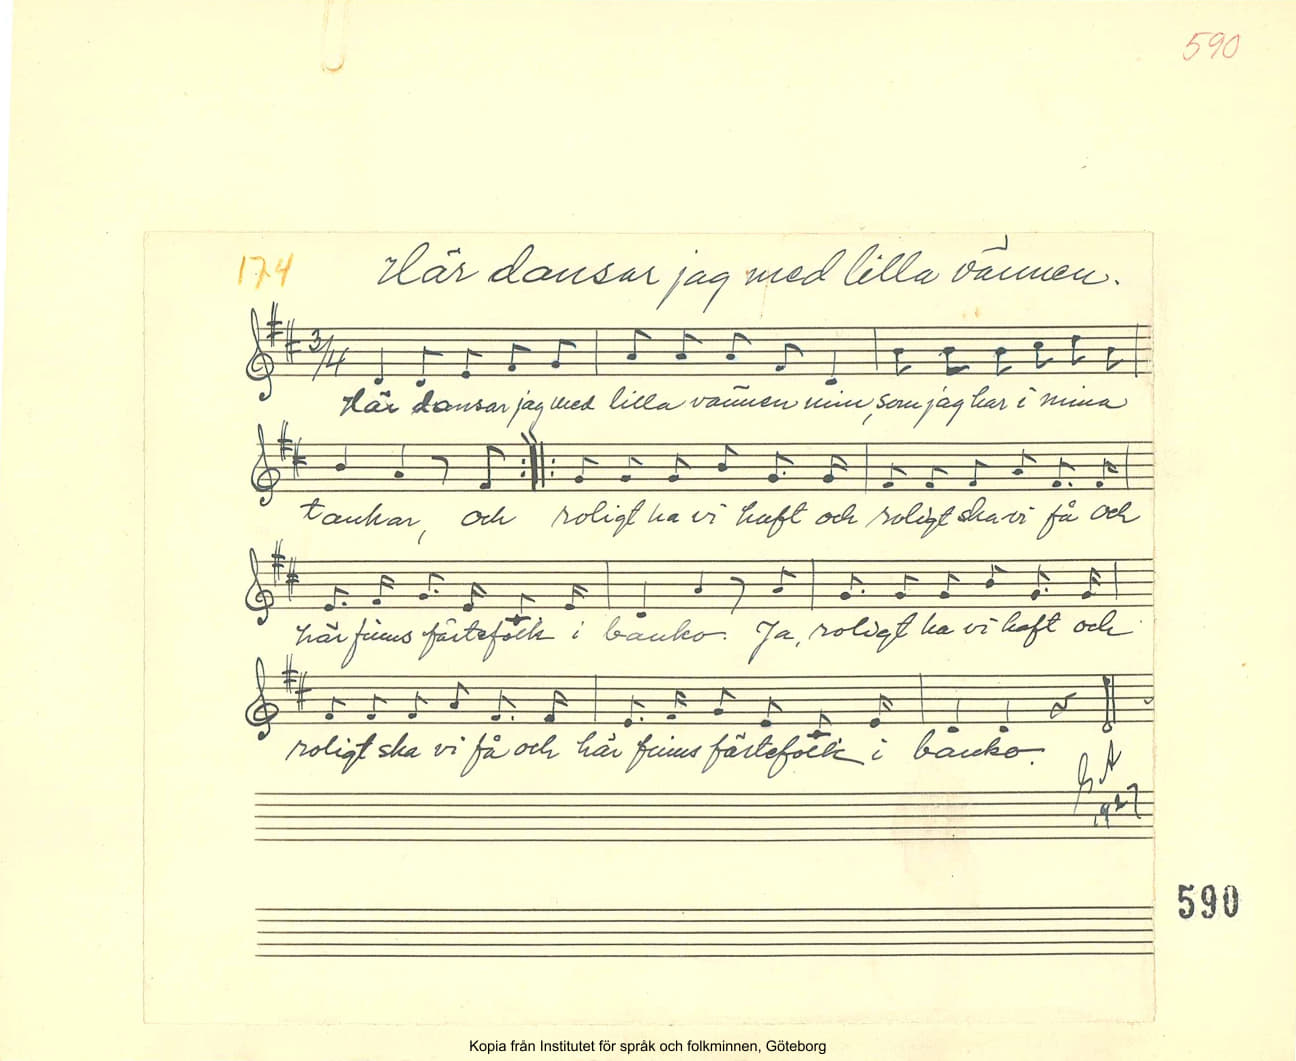 590
174
Här dansar jag med lilla vännen.
3/4
Här dansar jag med lilla vännen min, som jag har i mina
tankar, och roligt ha vi haft och roligt ska vi få och
här finns fästefolk i banko. Ja, roligt ha vi haft och
roligt ska vi få och här finns fästefolk i banko.
1927
590
Kopia från Institutet för språk och folkminnen, Göteborg